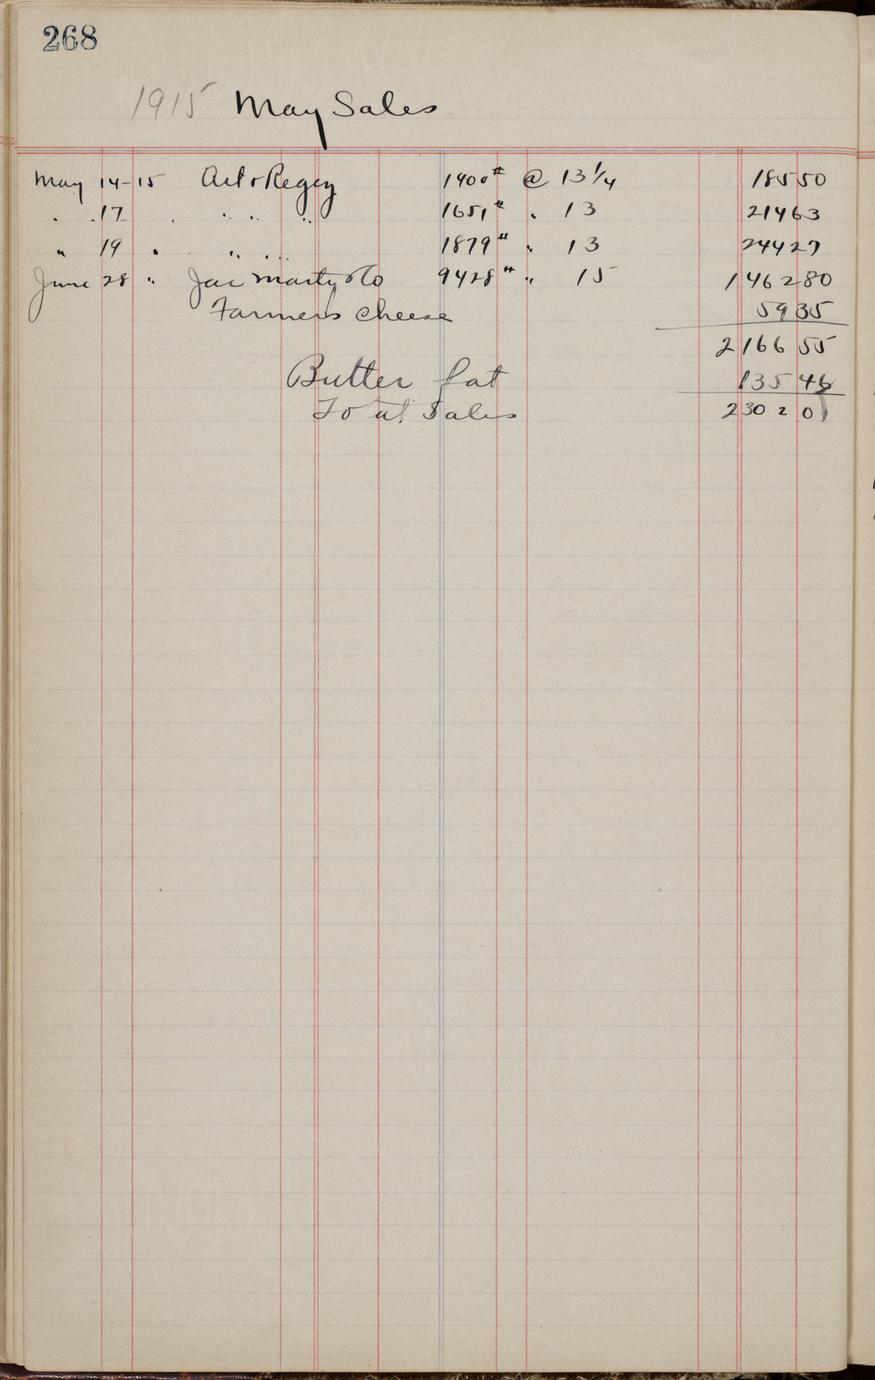 268
1915 May Sales
May 14-15 Art + Regez 1400# @ 13 1/4 185 50
" 17 " " " " 1651# " 13 214 63
" 19 " " " " 1879# " 13 244 27
June 28 " Jac Marty & Co 9428# " 15 1462 80
Farmers Cheese 59 35
2166 55
Butter fat 135 46
Total Sales 2302 01